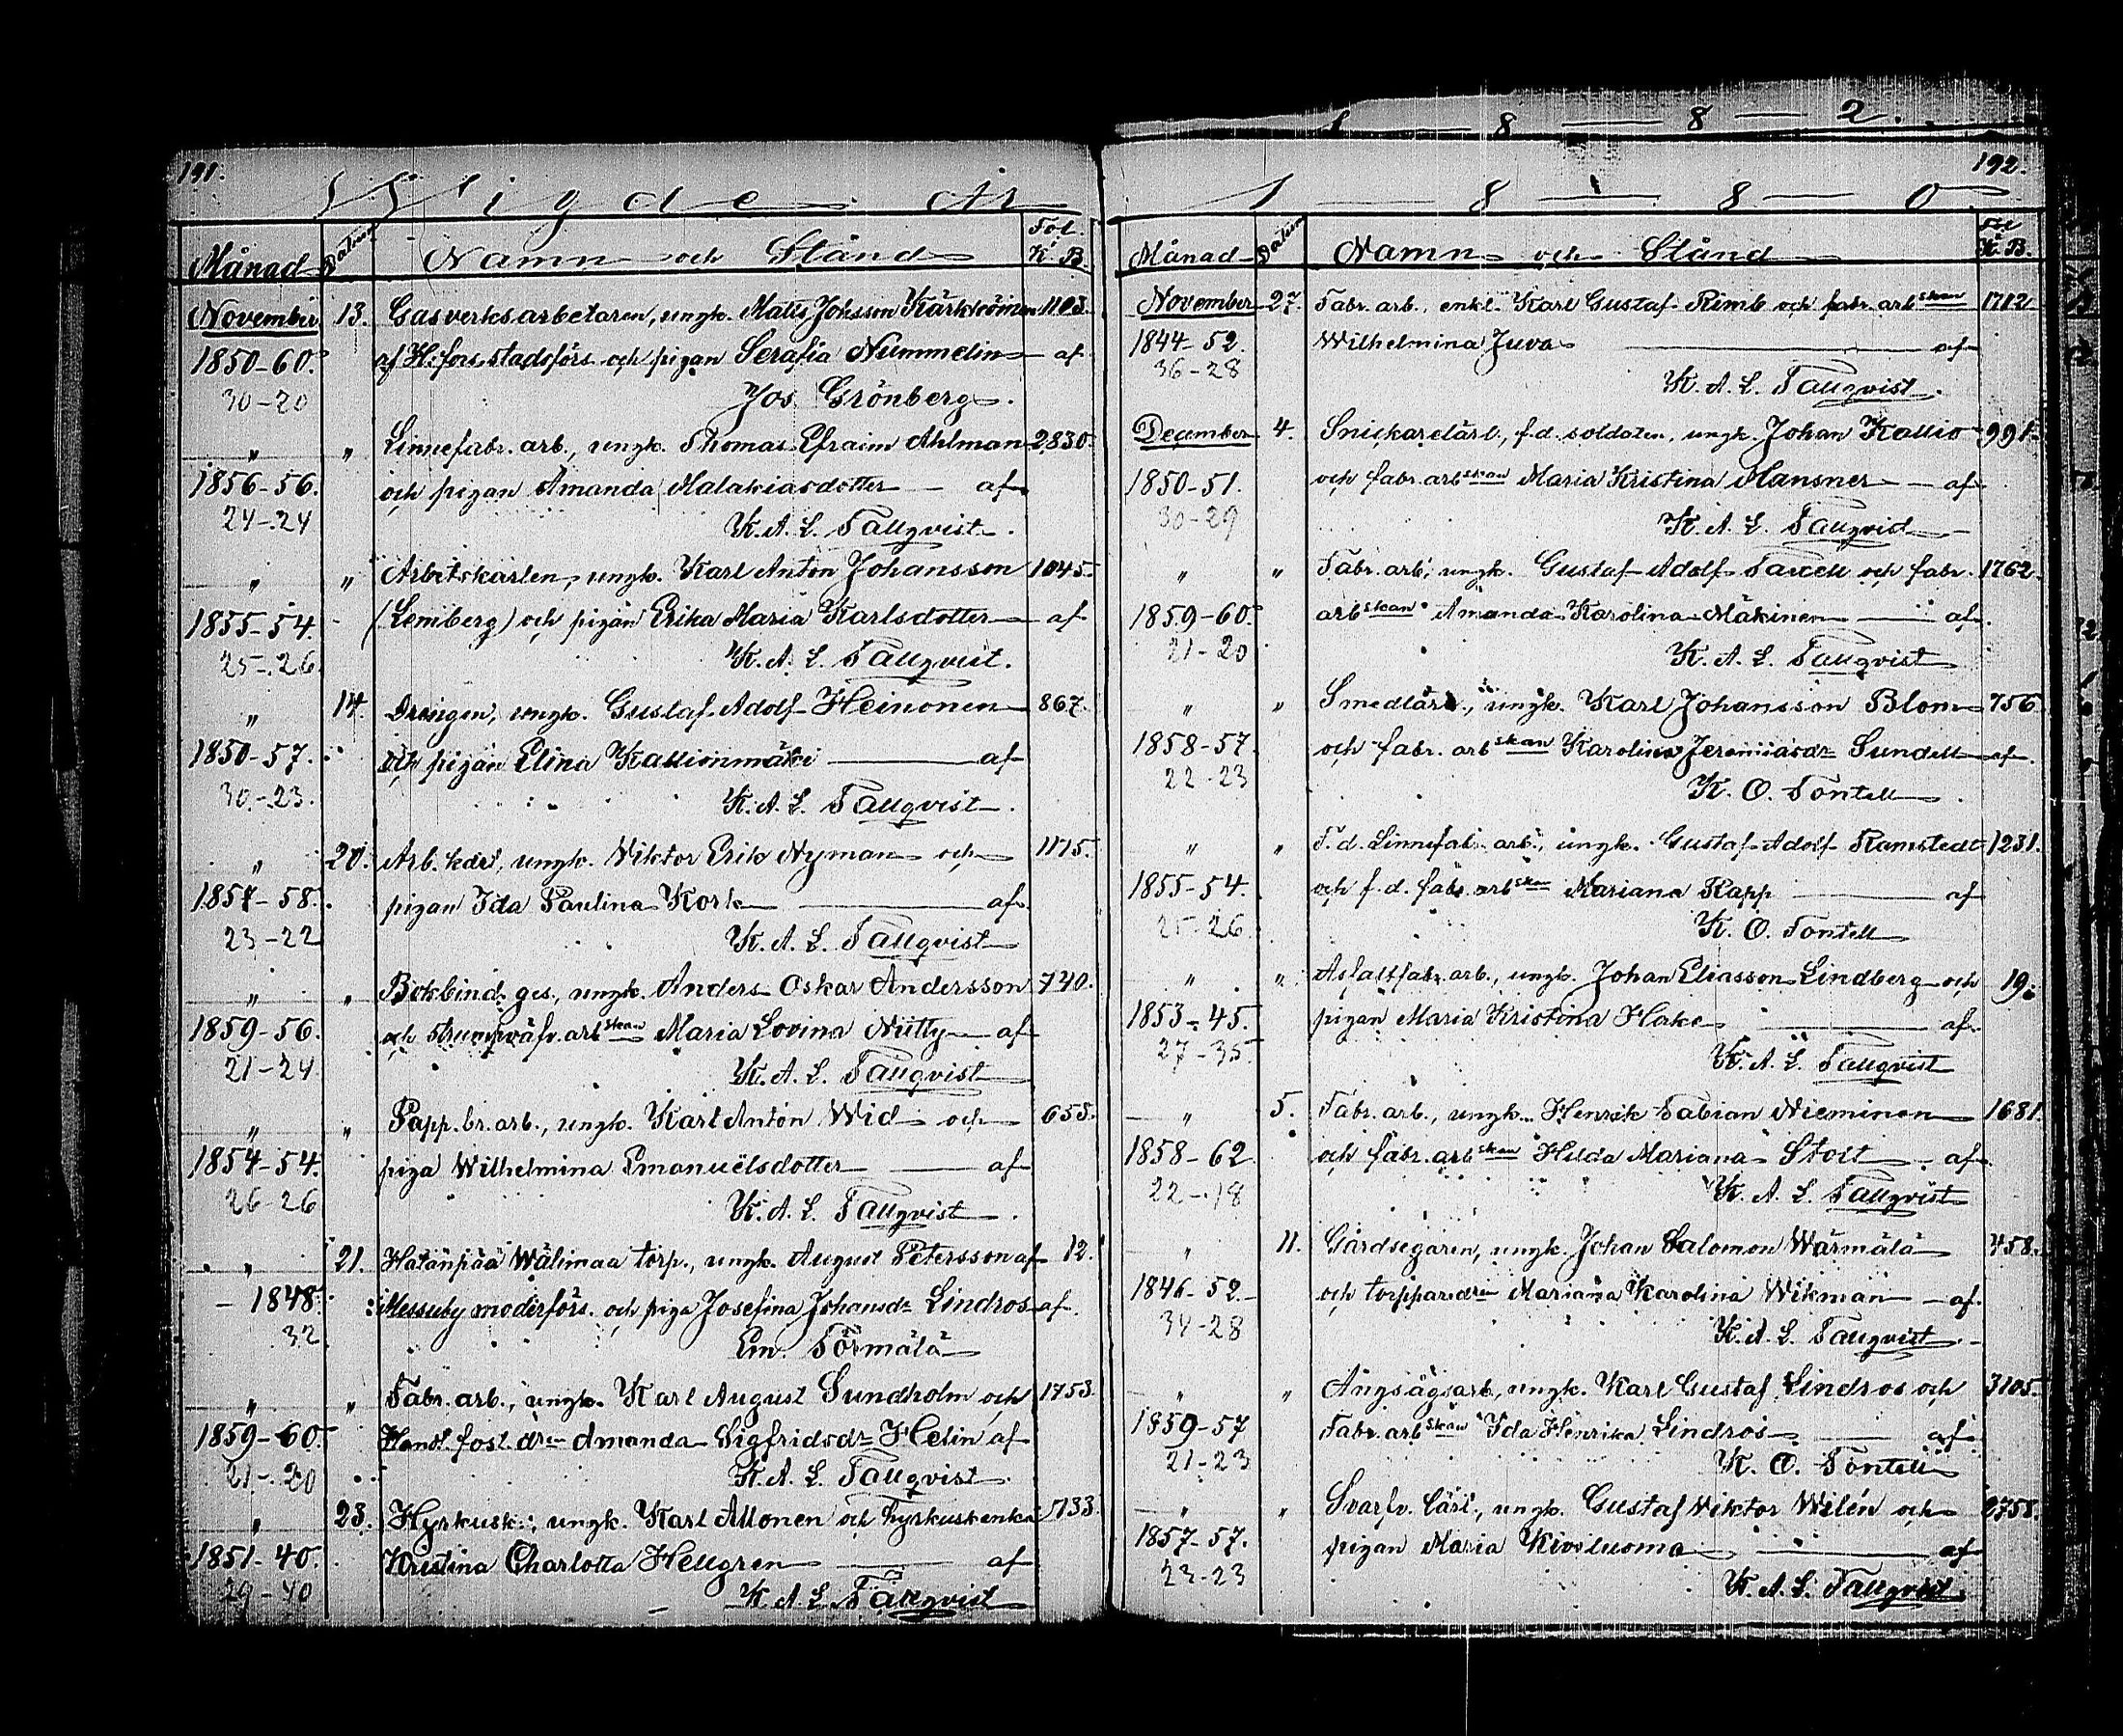 1 — 8 — 8 — 2.
191.
Wigde År
Månad Datum Namn och Stånd Fol. K. B.
November 13. Gasverksarbetaren, ungk. Matts Johsson 1103.
1850-60. af H:fors stadsförs. och pigan Serafia Nummelin — af
30-20 Jos Grönberg.
„ „ Linnefabr. arb., ungk. Thomas Efraim Ahlman 2830.
1856-56. och pigan Amanda Malakiasdotter — af
24-24 K. A. L. Tallqvist.
„ „ Arbetskarlen, ungk. Karl Anton Johansson 1045.
1855-54. (Lemberg) och pigan Erika Maria Karlsdotter — af
25-26. K. A. L. Tallqvist.
„ 14. Drängen, ungk. Gustaf Adolf Heinonen 867.
1850-57. och pigan Elina Kallionmäki — af
30-23. K. A. L. Tallqvist.
„ 20. Arb. karl, ungk. Wiktor Erik Nyman och 1175.
1857-58. pigan Ida Paulina Kork — af
23-22 K. A. L. Tallqvist
„ „ Bokbind. ges., ungk. Anders Oskar Andersson 740.
1859-56. och strumpväfv. arbskan Maria Lovina Niitty — af
21-24 K. A. L. Tallqvist
„ „ Papp. br. arb., ungk. Karl Anton Wid och 655.
1854-54. piga Wilhelmina Emanuelsdotter — af
26-26 K. A. L. Tallqvist.
„ 21. Hatanpää Wälimaa torp., ungk. August Petersson af 12.
— 1848. Messuby moderförs. och piga Josefina Johansdr Lindros af.
32 Em. Törmälä
„ „ Fabr. arb., ungk. Karl August Sundholm och 1753.
1859-60. Handl. fost. drn Amanda Sigfridsdr Helin af
21-20 K. A. L. Tallqvist
„ 23. Hyrkusk., ungk. Karl Allonen och hyrkuskenka 733.
1851-40. Kristina Charlotta Hellgren — af
29-40 K. A. L. Tallqvist
192.
1 — 8 — 8 — 0
Månad Datum Namn och Stånd Fol. K. B.
November 27. Fabr. arb., enkl. Karl Gustaf Rimb och fabr. arbskan 1712
1844-52. Wilhelmina Juva — af
36-28 K. A. L. Tallqvist.
December 4. Snickarelärl., f.d. soldaten, ungk. Johan Kallio 991.
1850-51. och fabr. arbskan Maria Kristina Mansner — af
30-29 K. A. L. Tallqvist
„ „ Fabr. arb., ungk. Gustaf Adolf Tarcell och fabr. 1762.
1859-60. arbskan Amanda Karolina Mäkinen — af.
21-20 K. A. L. Tallqvist
„ „ Smedlärl., ungk. Karl Johansson Blom 756
1858-57. och fabr. arbskan Karolina Jeremiasdr Sundell af.
22-23 K. O. Fontell
„ „ F. d. Linnefabr. arb., ungk. Gustaf Adolf Ramstedt 1231.
1855-54. och f. d. fabr. arbskan Mariana Rapp — af
25-26. K. O. Fontell
„ „ Asfaltfabr. arb., ungk. Johan Eliasson Lindberg och 19.
1853-45. pigan Maria Kristina Hake — af.
27-35. K. A. L. Tallqvist
„ 5. Fabr. arb., ungk. Henrik Fabian Nieminen 1681.
1858-62. och fabr. arbskan Hilda Mariana Stolt — af
22-18 K. A. L. Tallqvist
„ 11. Gårdsegaren, ungk. Johan Salomon Wärmälä 458.
1846-52. och torpparedrn Mariana Karolina Wikman — af.
34-28 K. A. L. Tallqvist
„ „ Ångsågsarb., ungk. Karl Gustaf Lindros och 3105.
1859-57 Fabr. arbskan Ida Henrika Lindros — af
21-23 K. O. Fontell
„ „ Svarfv. lärl., ungk. Gustaf Wiktor Wilén och 2758.
1857-57. pigan Maria Kivoluoma — af
23-23 K. A. L. Tallqvist.